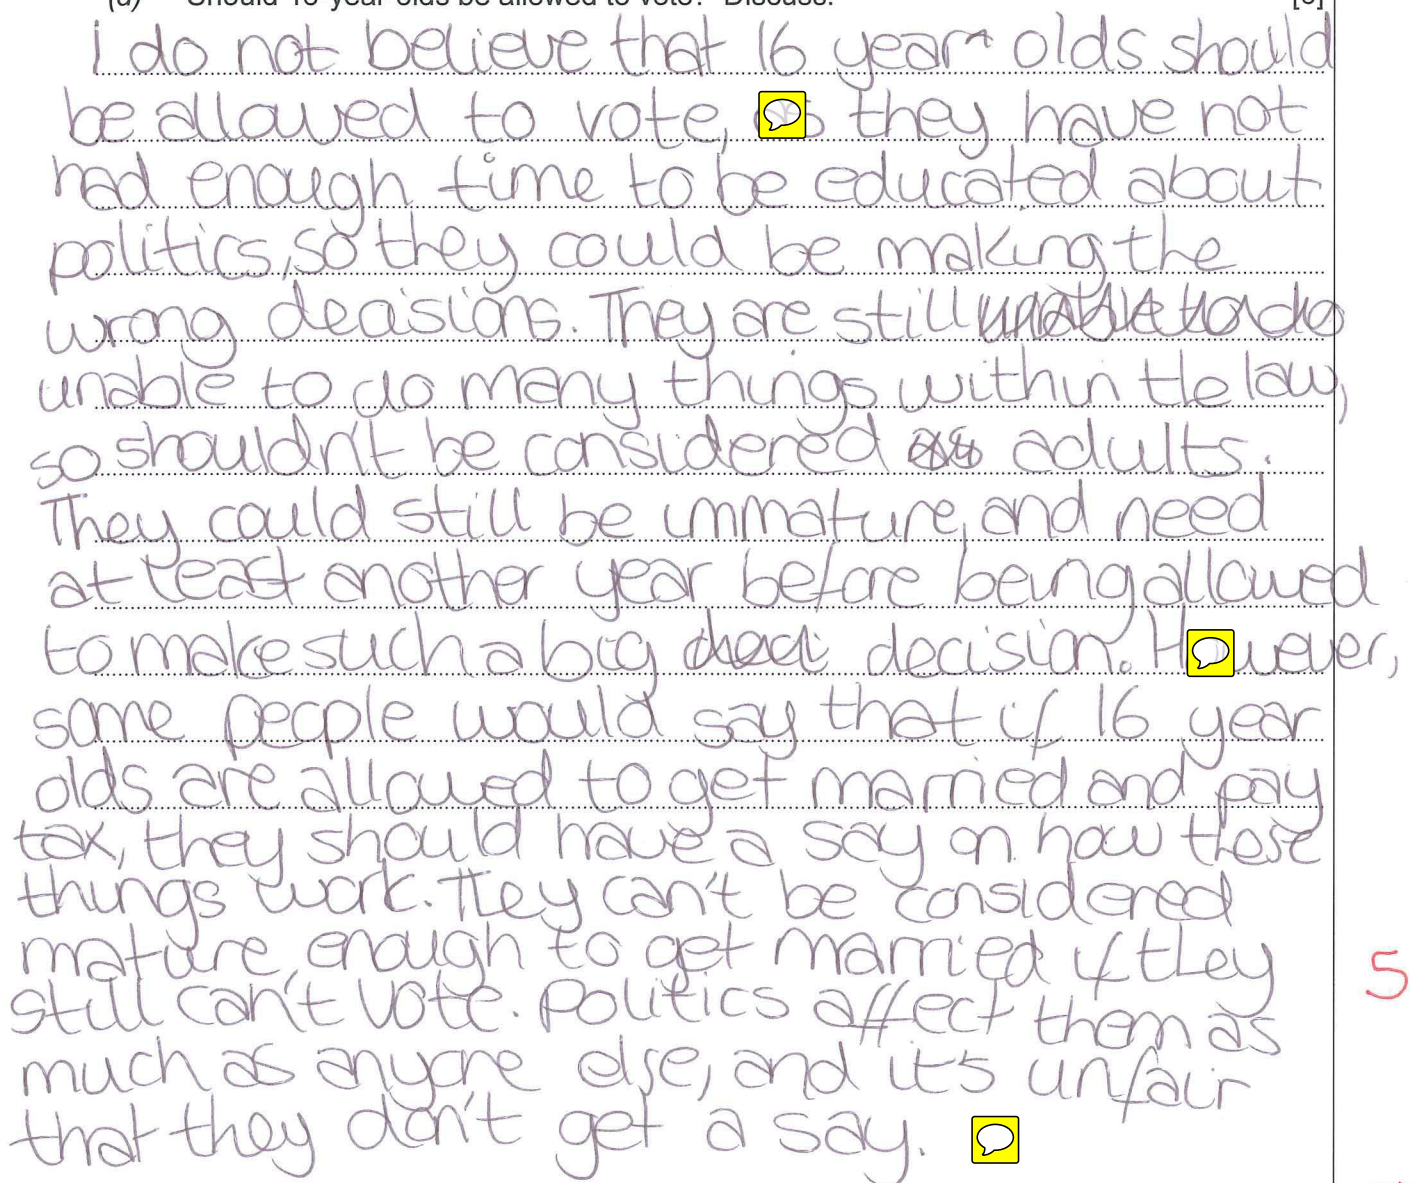 (d) Should 16 year olds be allowed to vote? Discuss.
I do not believe that 16 year olds should
be allowed to vote, as they have not
had enough time to be educated about
politics, so they could be making the
wrong decisions. They are still unable to do
unable to do many things within the law,
so shouldn't be considered as adults.
They could still be immature, and need
at least another year before being allowed
to make such a big decision. However,
some people would say that if 16 year
olds are allowed to get married and pay
tax, they should have a say on how those
things work. They can't be considered
mature enough to get married if they
still can't vote. Politics affect them as
much as anyone else, and it's unfair
that they don't get a say.
5